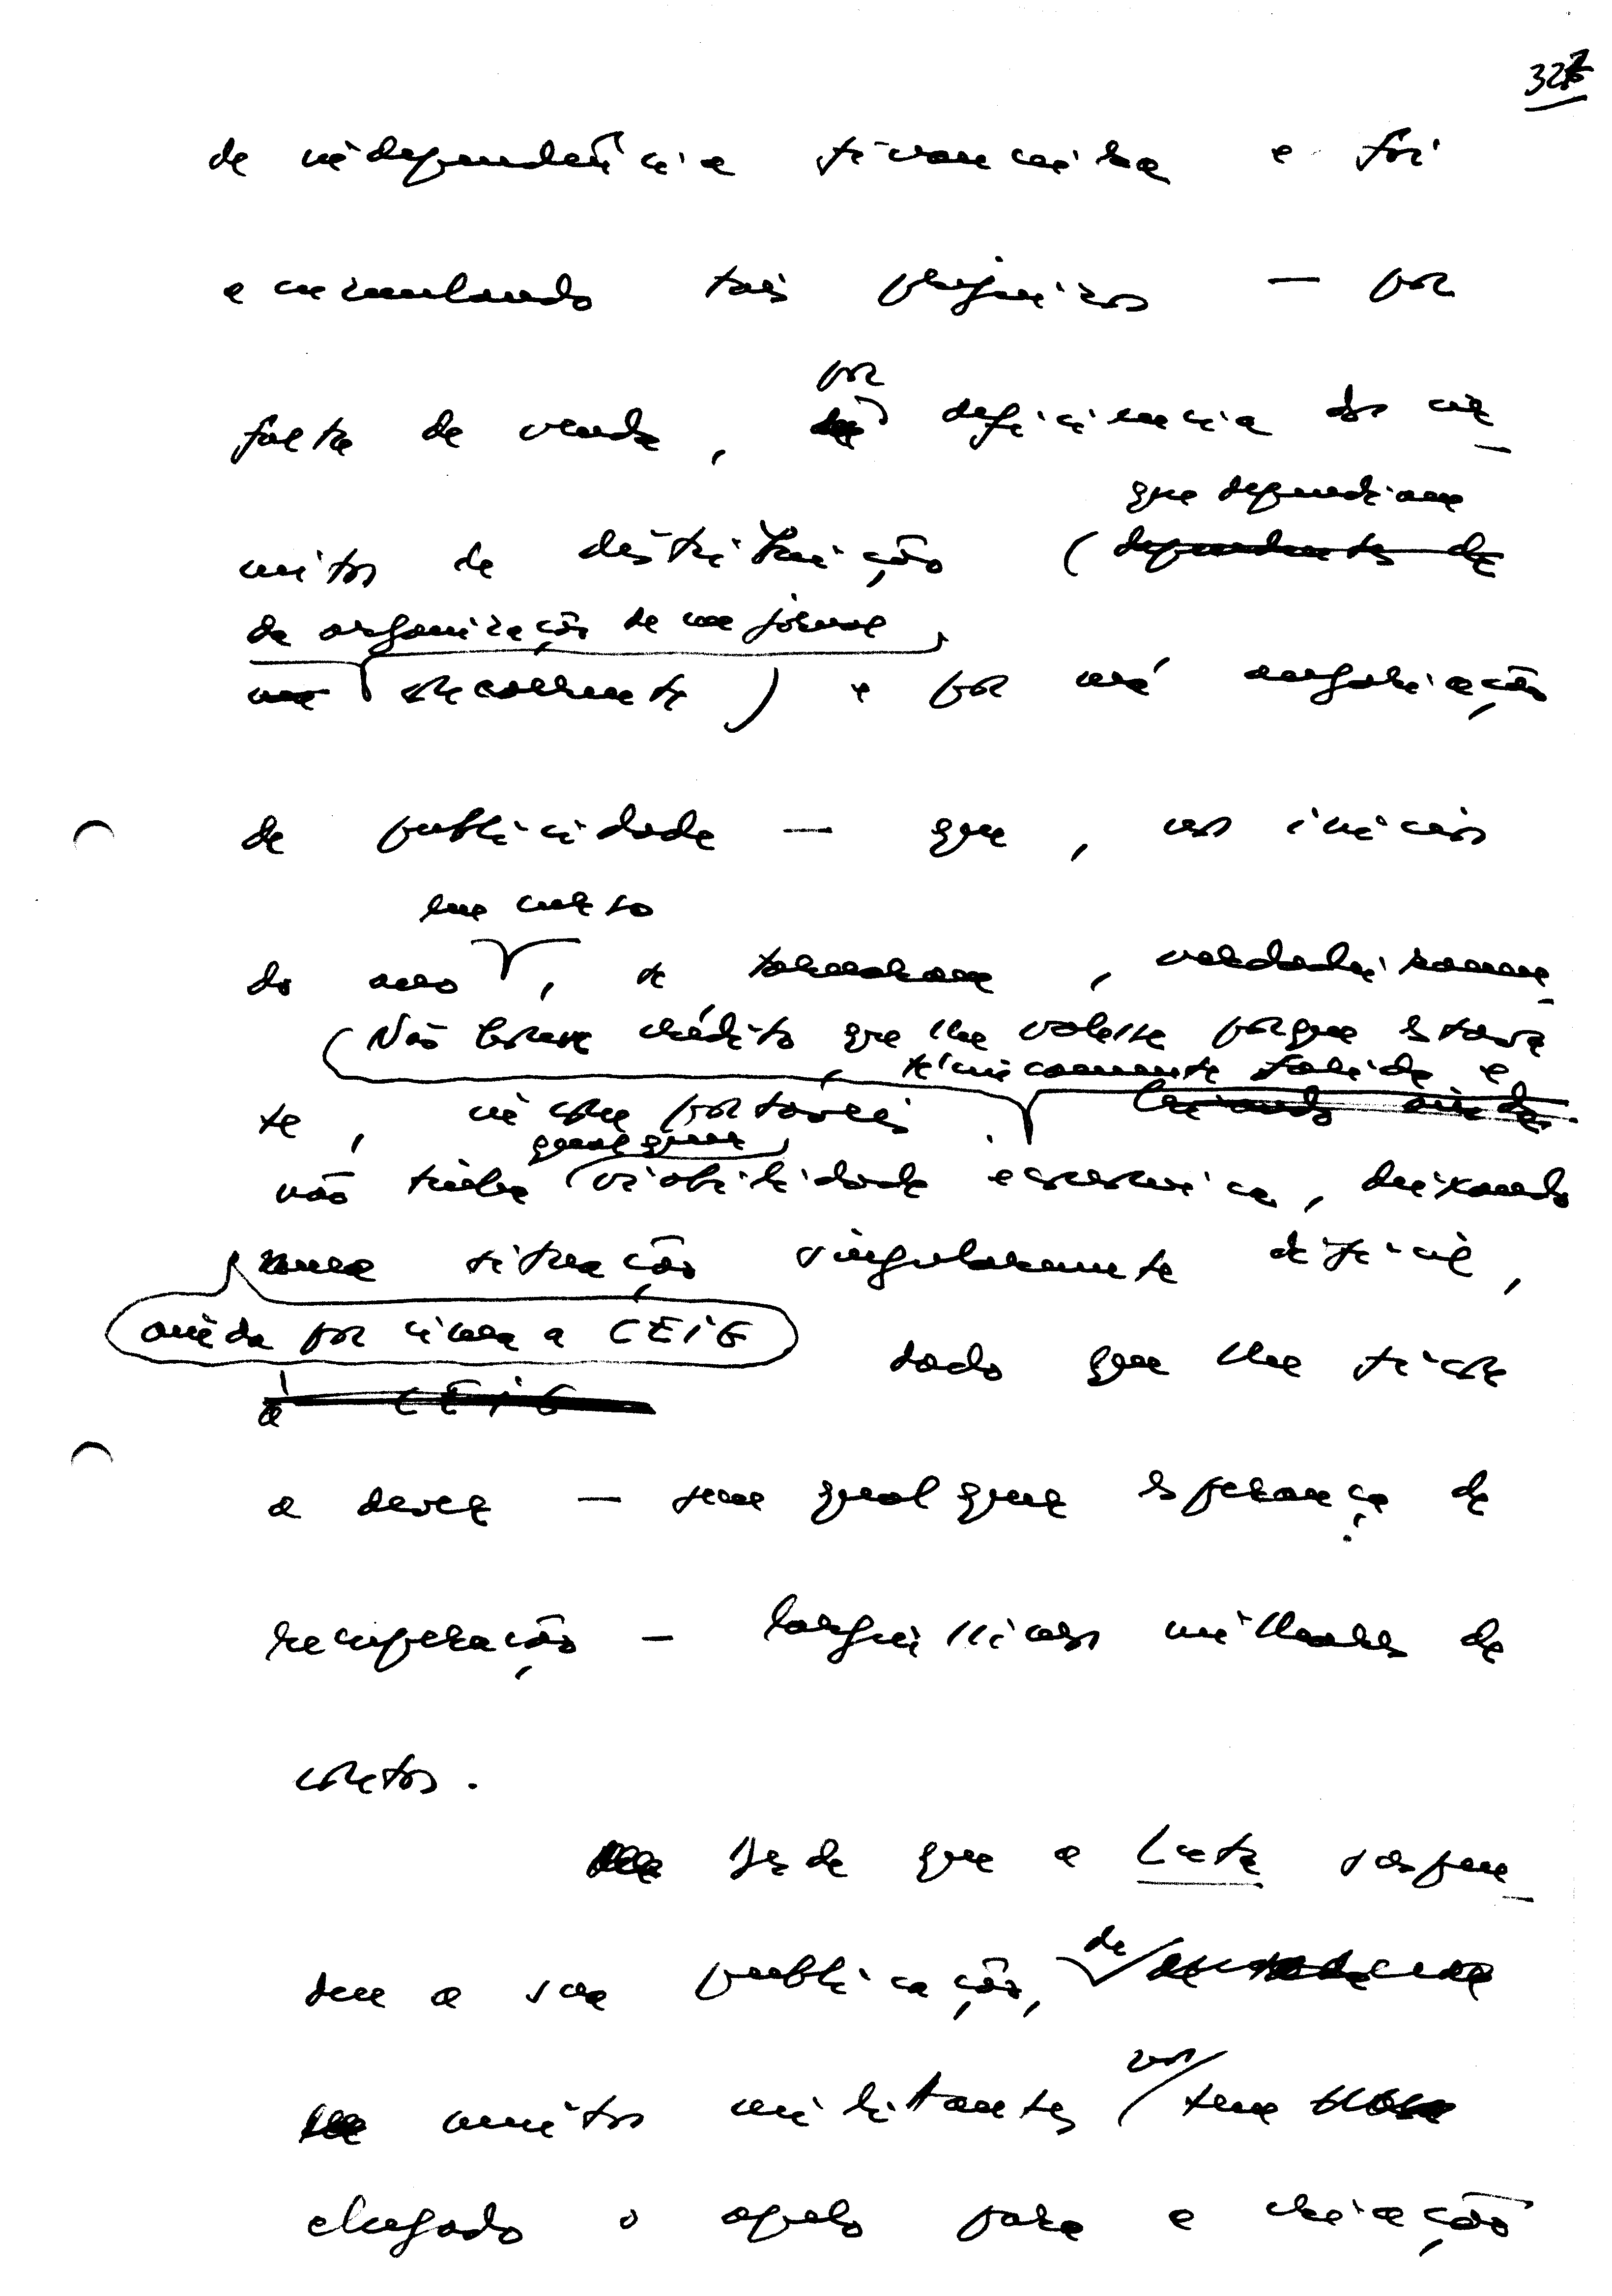 327
de independência financeira e foi
acumulando tais prejuízos — por
falta de venda, por deficiencia do cir-
cuitos de distribuição (que dependiam
da organização de um jornal
concorrente) e por má angariação
de publicidade — que, nos inícios
do ano em curso, se tornaram, verdadeiramen-
te, insuportáveis.
Não houve crédito que lhe valesse porque estava
técnicamente falida e
não tinha qualquer viabilidade economica, deixando
numa situação singularmente difícil,
ainda por cima a CEIG
dado que lhe ficou
a dever — sem qualquer esperança de
recuperação — larguissimos milhares de
contos.
Desde que a Luta suspen-
deu a sua publicação, de
muitos militantes nos tem
chegado o apelo para a criação